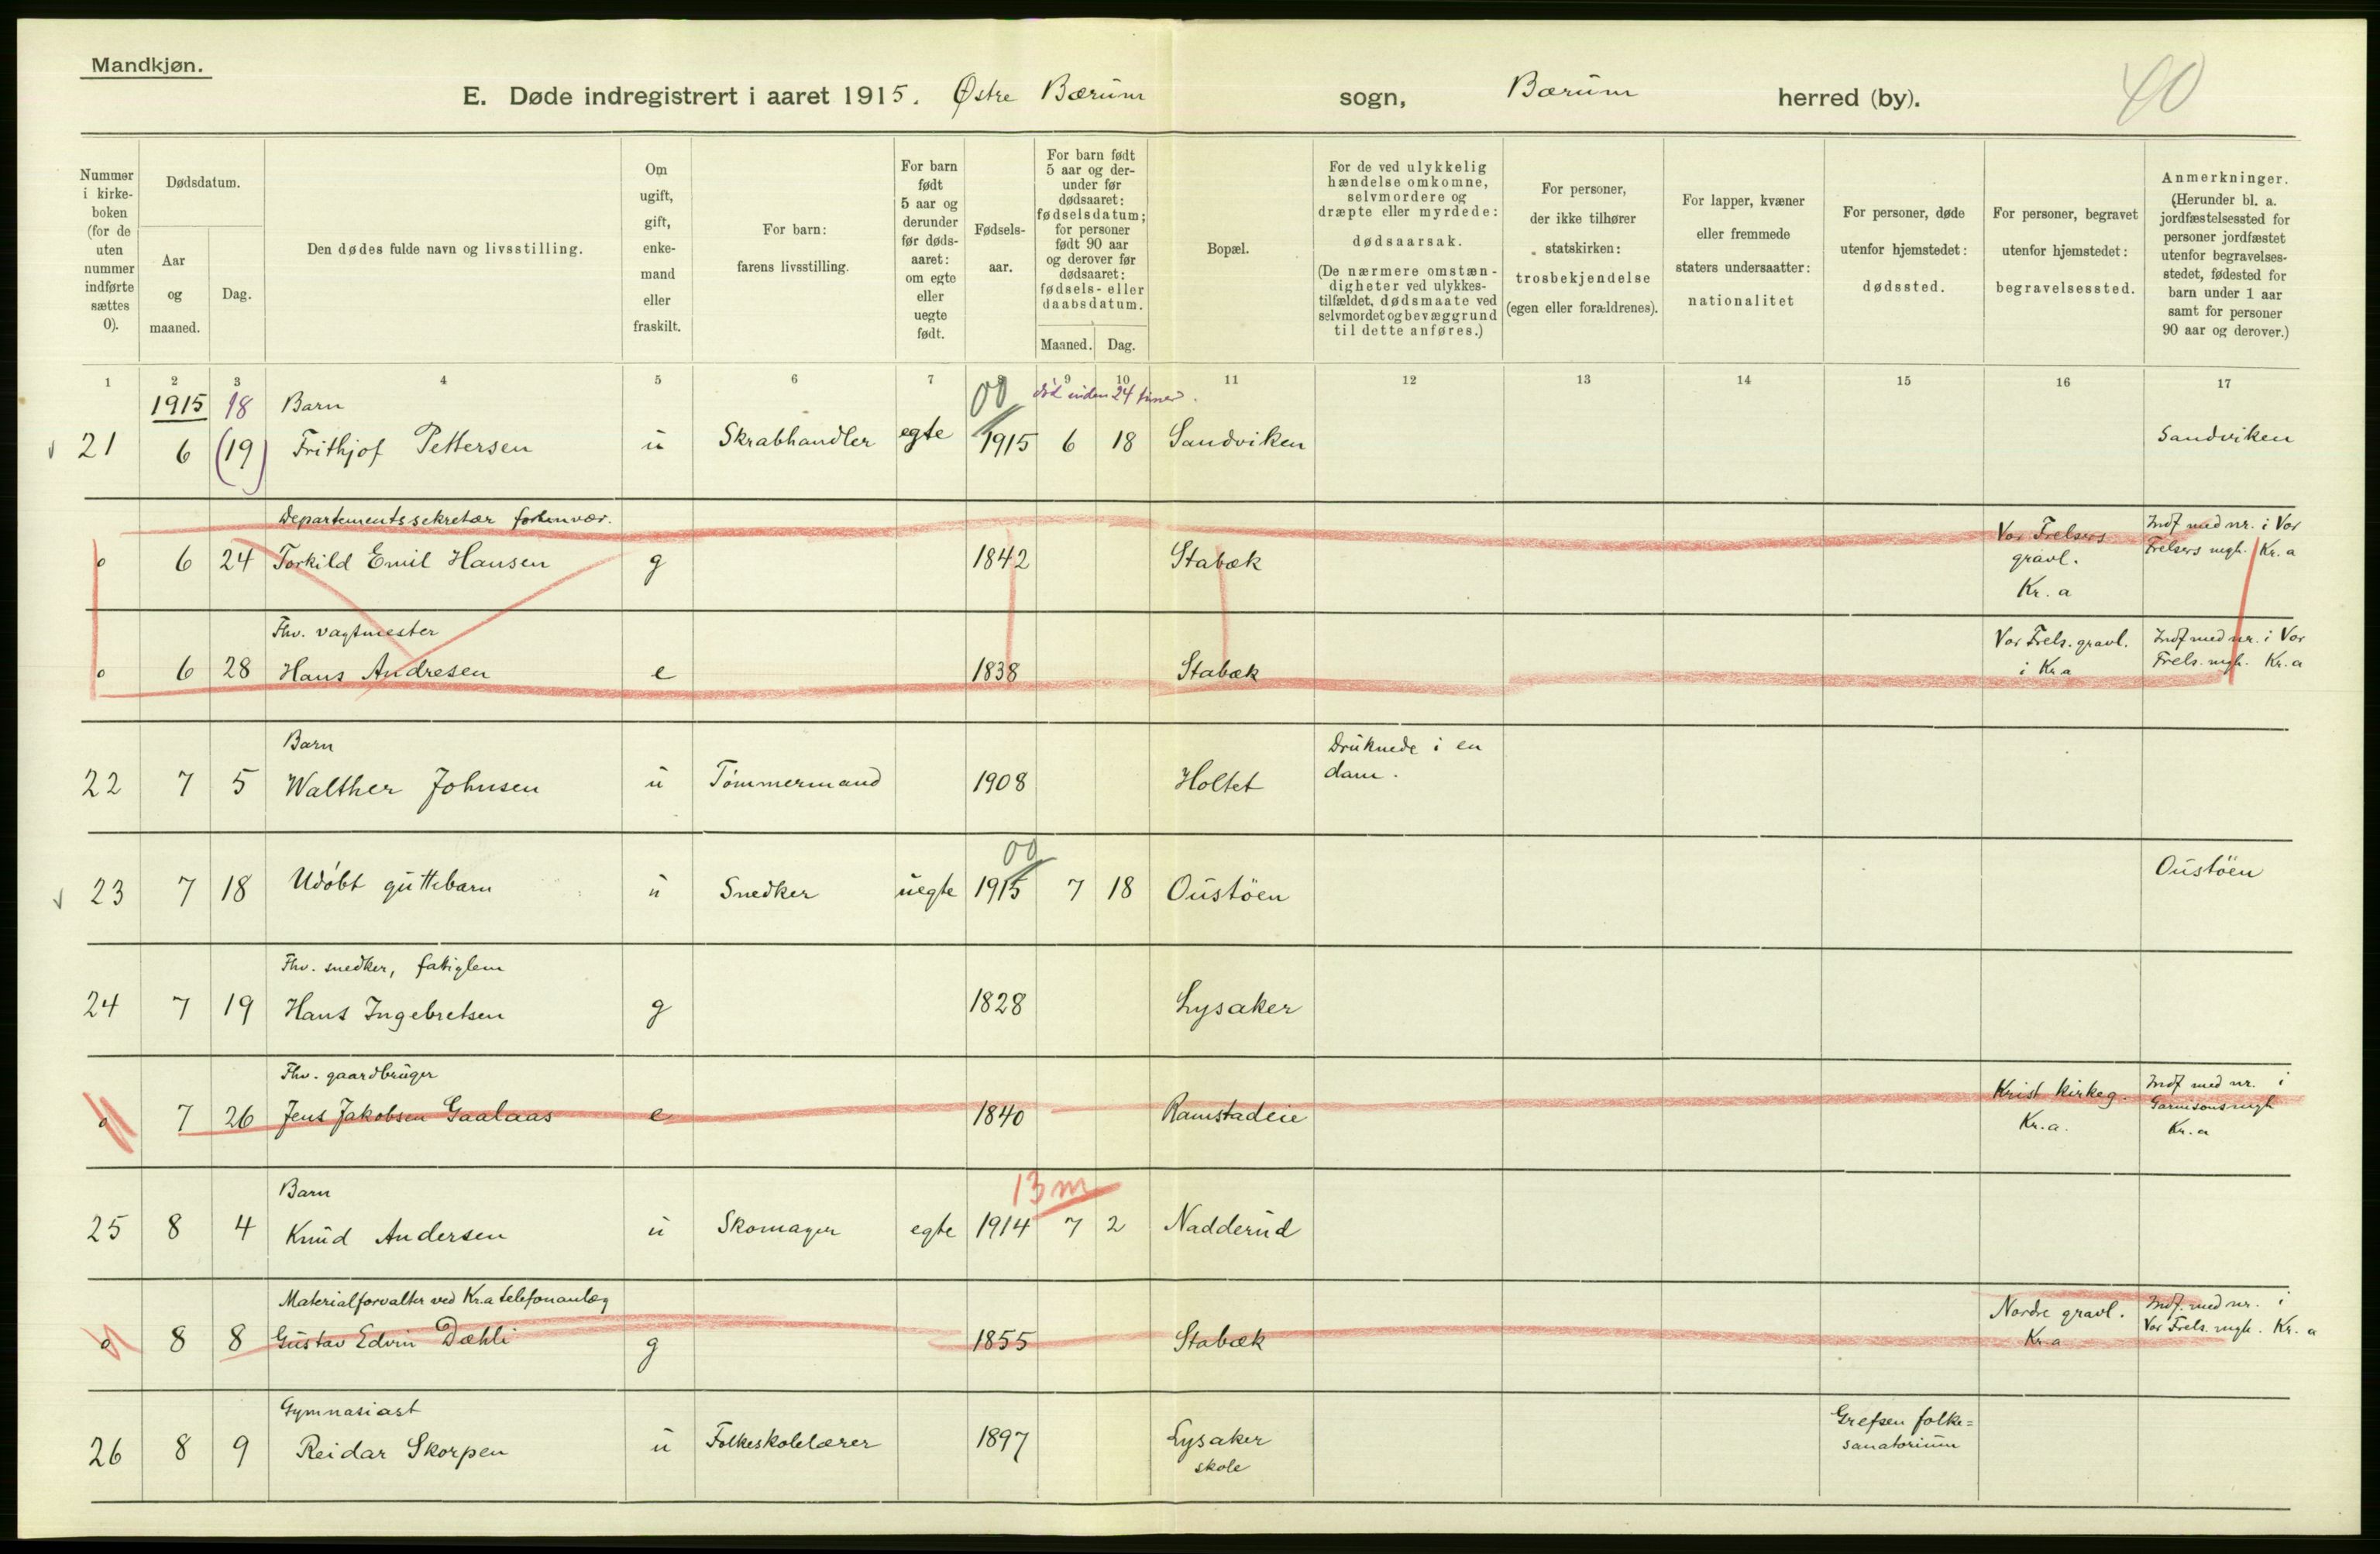 Mandkjøn.
E. Døde indregistrert i aaret 1915. Østre Bærum sogn, Bærum herred (by).
40
Nummer i kirkeboken (for de uten nummer indførte sættes 0).
Dødsdatum.
Aar og maaned.
Dag.
Den dødes fulde navn og livsstilling.
Om ugift, gift, enkemand eller fraskilt.
For barn: farens livsstilling.
For barn født 5 aar og derunder før dødsaaret: om egte eller uegte født.
Fødselsaar.
For barn født 5 aar og derunder før dødsaaret: fødselsdatum; for personer født 90 aar og derover før dødsaaret: fødsels- eller daabsdatum.
Maaned. Dag.
Bopæl.
For de ved ulykkelig hændelse omkomne, selvmordere og dræpte eller myrdede: dødsaarsak. (De nærmere omstændigheter ved ulykkestilfældet, dødsmaate ved selvmordet og bevæggrund til dette anføres.)
For personer, der ikke tilhører statskirken: trosbekjendelse (egen eller forældrenes).
For lapper, kvæner eller fremmede staters undersaatter: nationalitet
For personer, døde utenfor hjemstedet: dødssted.
For personer, begravet utenfor hjemstedet: begravelsessted.
Anmerkninger. (Herunder bl. a. jordfæstelsessted for personer jordfæstet utenfor begravelsesstedet, fødested for barn under 1 aar samt for personer 90 aar og derover.)
1 2 3 4 5 6 7 8 9 10 11 12 13 14 15 16 17
1915 18 Barn 00 død inden 24 timer.
21 6 (19) Frithjof Pettersen u Skrabhandler egte 1915 6 18 Sandviken Sandviken
Departementssekretær forhenvær.
0 6 24 Torkild Emil Hansen g 1842 Stabæk Vor Frelsers gravl. Kr. a Indf med nr. i Vor Frelsers mgh. Kr. a
Fhv. vagtmester
0 6 28 Hans Andresen e 1838 Stabæk Vor Frels. gravl. i Kr a Indf med nr. i Vor Frels. mgh. Kr. a
Barn
22 7 5 Walther Johnsen u Tømmermand 1908 Holtet Druknede i en dam.
00
23 7 18 Udøbt guttebarn u Snedker uegte 1915 7 18 Oustöen Oustöen
Fhv. snedker, fattiglem
24 7 19 Hans Ingebretsen g 1828 Lysaker
Fhv. gaardbruger
0 7 26 Jens Jakobsen Gaalaas e 1840 Ramstadeie Krist kirkeg. Kr. a. Indf med nr. i Garnisonsmgh Kr. a
Barn 13 m
25 8 4 Knud Andersen u Skomager egte 1914 7 2 Nadderud
Materialforvalter ved Kr.a telefonanlæg
0 8 8 Gustav Edvin Dæhli g 1855 Stabæk Nordre gravl. Kr a Indf. med nr. i Vor Frels. mgh. Kr. a
Gymnasiast
26 8 9 Reidar Skorpen u Folkeskolelærer 1897 Lysaker skole Grefsen folke= sanatorium